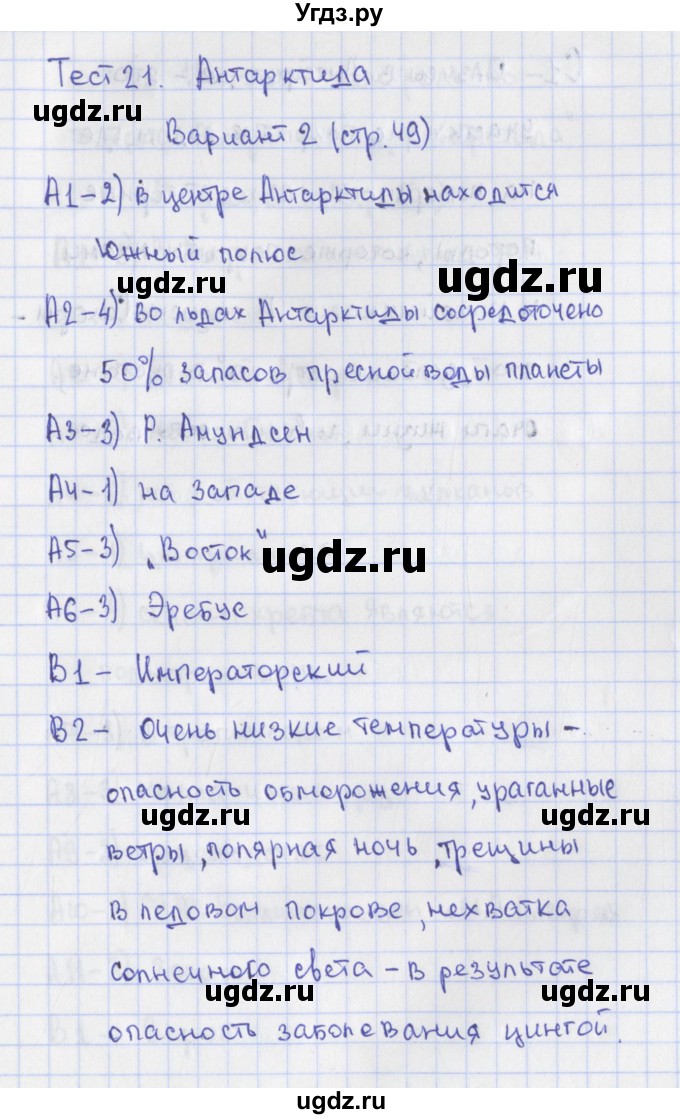 Угдз.ру
Тест 21. Антарктида
ugdz.ru
Вариант 2 (стр.49)
А1-2) в центре Антарктиды находится
Южный полюс
ugdz.ru
ugdz.ru
А2-4) Во льдах Антарктиды сосредоточено
50% запасов пресной воды планеты
А3-3) Р. Амундсен
А4-1) на Западе
А5-3) „Восток"
ugdz.ru
А6-3) Эребус
В1- Императорский
В2- Очень низкие температуры -
опасность обморожения, ураганные
ugdz.ru
ugdz.ru
ветры, полярная ночь, трещины
в ледовом покрове, нехватка
солнечного света - в результате
ugdz.ru
ugdz.ru
опасность заболевания цингой.
ugdz.ru